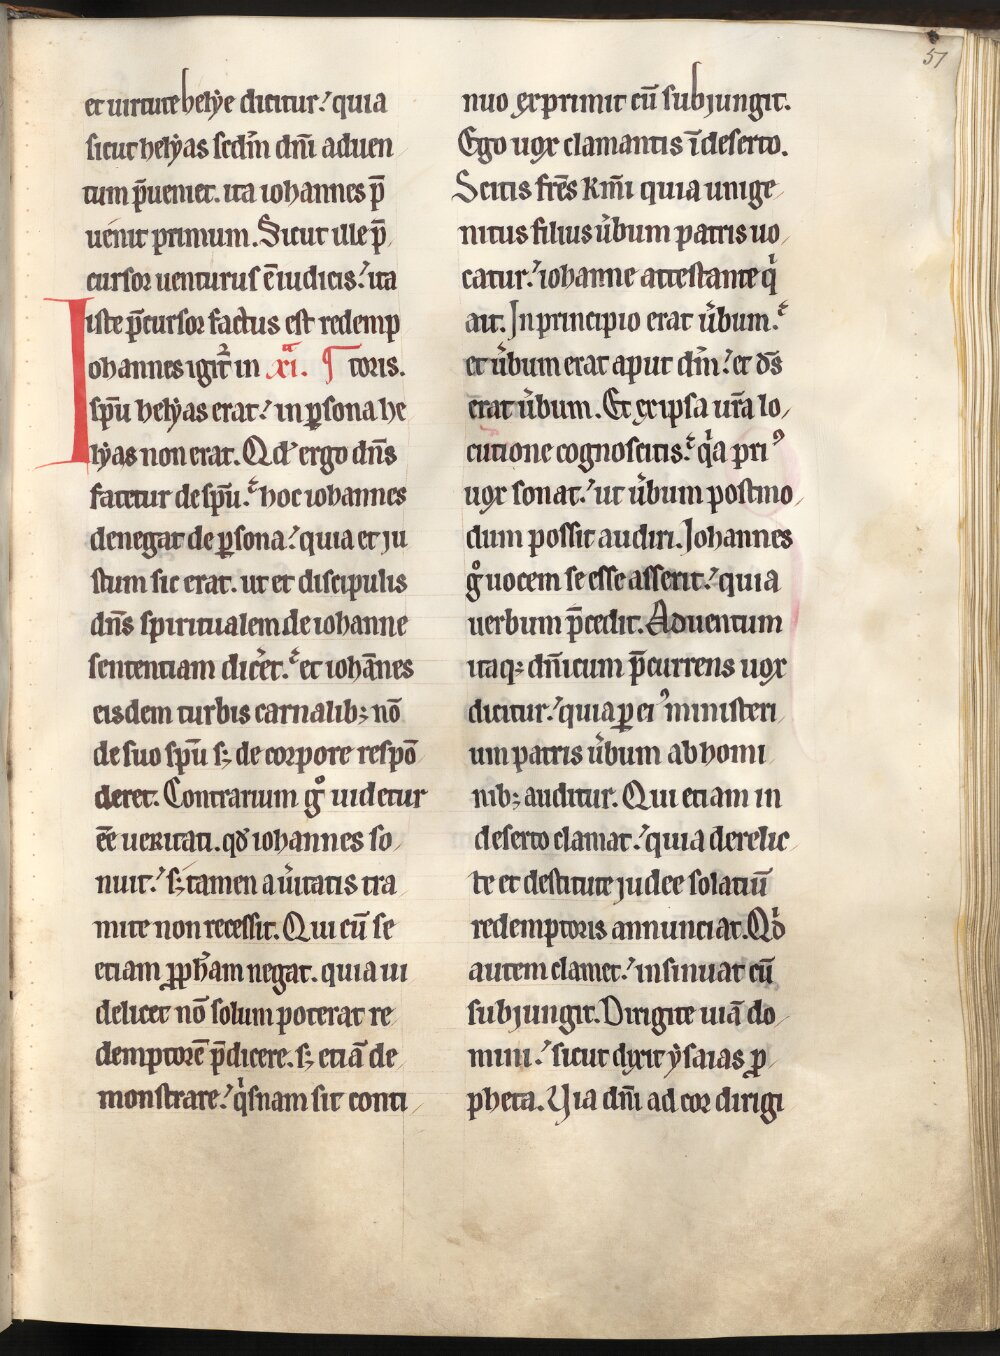 51
et uirtute helẏe dicitur:́ quia
sicut helẏas scd̄m dn̄i aduen
tum p̄ueniet. ita iohannes p̄
uenit primum. Sicut ille p̄
cursor uenturus ē iudicis:́ ita
iste p̄cursor factus est redemp
Iohannes igit᷑ in xi.ͣ ¶ toris.
sp̄u helẏas erat:́ in ꝑsona he
lẏas non erat. Qd̓ ergo dn̄s
fatetur de sp̄u:́ hoc iohannes
denegat de ꝑsona:́ quia et iu
stum sic erat. ut et discipulis
dn̄s spiritualem de iohanne
sententiam dic̓et:́ et iohān̄es
eisdem turbis carnalib; nō
de suo sp̄u s; de corpore respō
deret. Contrarium gͦ uidetur
ēe ueritati. qd̓ iohannes so
nuit:́ s; tamen a u̓itatis tra
mite non recessit. Qui cū se
etiam ꝓph̄am negat. quia ui
delicet nō solum poterat re
demptorē p̄dicere. s; etiā de
monstrare:́ qͥsnam sit conti
nuo exprimit cū subiungit.
Ego uox clamantis ī deserto.
Scitis fr̄es km̄i quia unige
nitus filius u̓bum patris uo
catur:́ iohanne attestante qͥ
ait. In principio erat u̓bum:́
et u̓bum erat aput dm̄:́ et ds̄
erat u̓bum. Et ex ipsa ur̄a lo
cutione cognoscitis:́ qͣa priꝰ
uox sonat:́ ut u̓bum postmo
dum possit audiri. Johannes
gͦ uocem se esse asserit:́ quia
uerbum p̄cedit. Aduentum
itaq; dn̄icum p̄currens uox
dicitur:́ quia ꝑ eiꝰ ministeri
um patris u̓bum ab homi
nib; auditur. Qui etiam in
deserto clamat:́ quia derelic
te et destitute iudee solatiū
redemptoris annunciat. Qd̓
autem clamet:́ insinuat cū
subiungit. Dirigite uiā do
mini:́ sicut dixit ẏsaias ꝓ
pheta. Via dn̄i ad cor dirigi